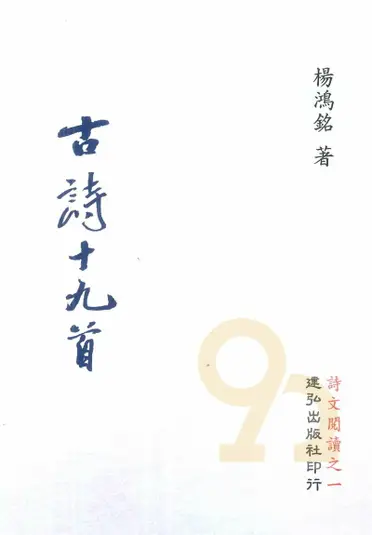 楊鴻銘 著
古詩十九首
詩文閱讀之一
建弘出版社印行